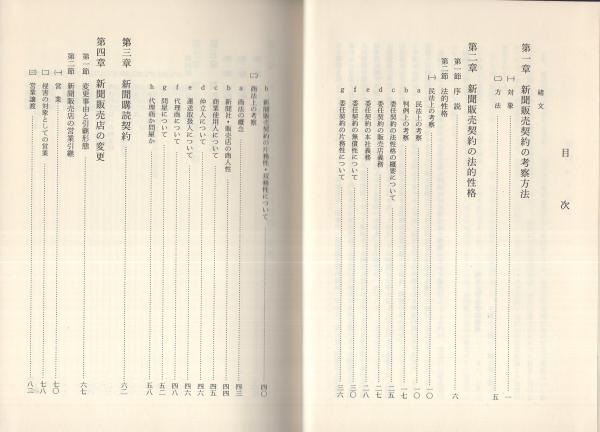 目次
緒文
第一章 新聞販売契約の考察方法
㈠ 対象 一
㈡ 方法 五
第二章 新聞販売契約の法的性格
第一節 序説 六
第二節 法的性格
㈠ 民法上の考察 一〇
a 民法上の考察 一〇
b 判例上の考察 一七
c 委任契約の法性格の概要について 二五
d 委任契約の販売店義務 二七
e 委任契約の本社義務 二八
f 委任契約の無償性について 三〇
g 委任契約の片務性について 三六
h 新聞販売契約の片務性・双務性について 四〇
㈡ 商法上の考察
a 商法の概念 四三
b 新聞社・販売店の商人性 四四
c 商業使用人について 四五
d 仲立人について 四六
e 運送取扱人について 四六
f 代理商について 四八
g 問屋について 五二
h 代理商か問屋か 五八
第三章 新聞購読契約 六二
第四章 新聞販売店の変更
第一節 変更事由と引継形態 六七
第二節 新聞販売店の営業引継
㈠ 営業 七〇
㈡ 侵害の対象としての営業 七八
㈢ 営業譲渡 八二